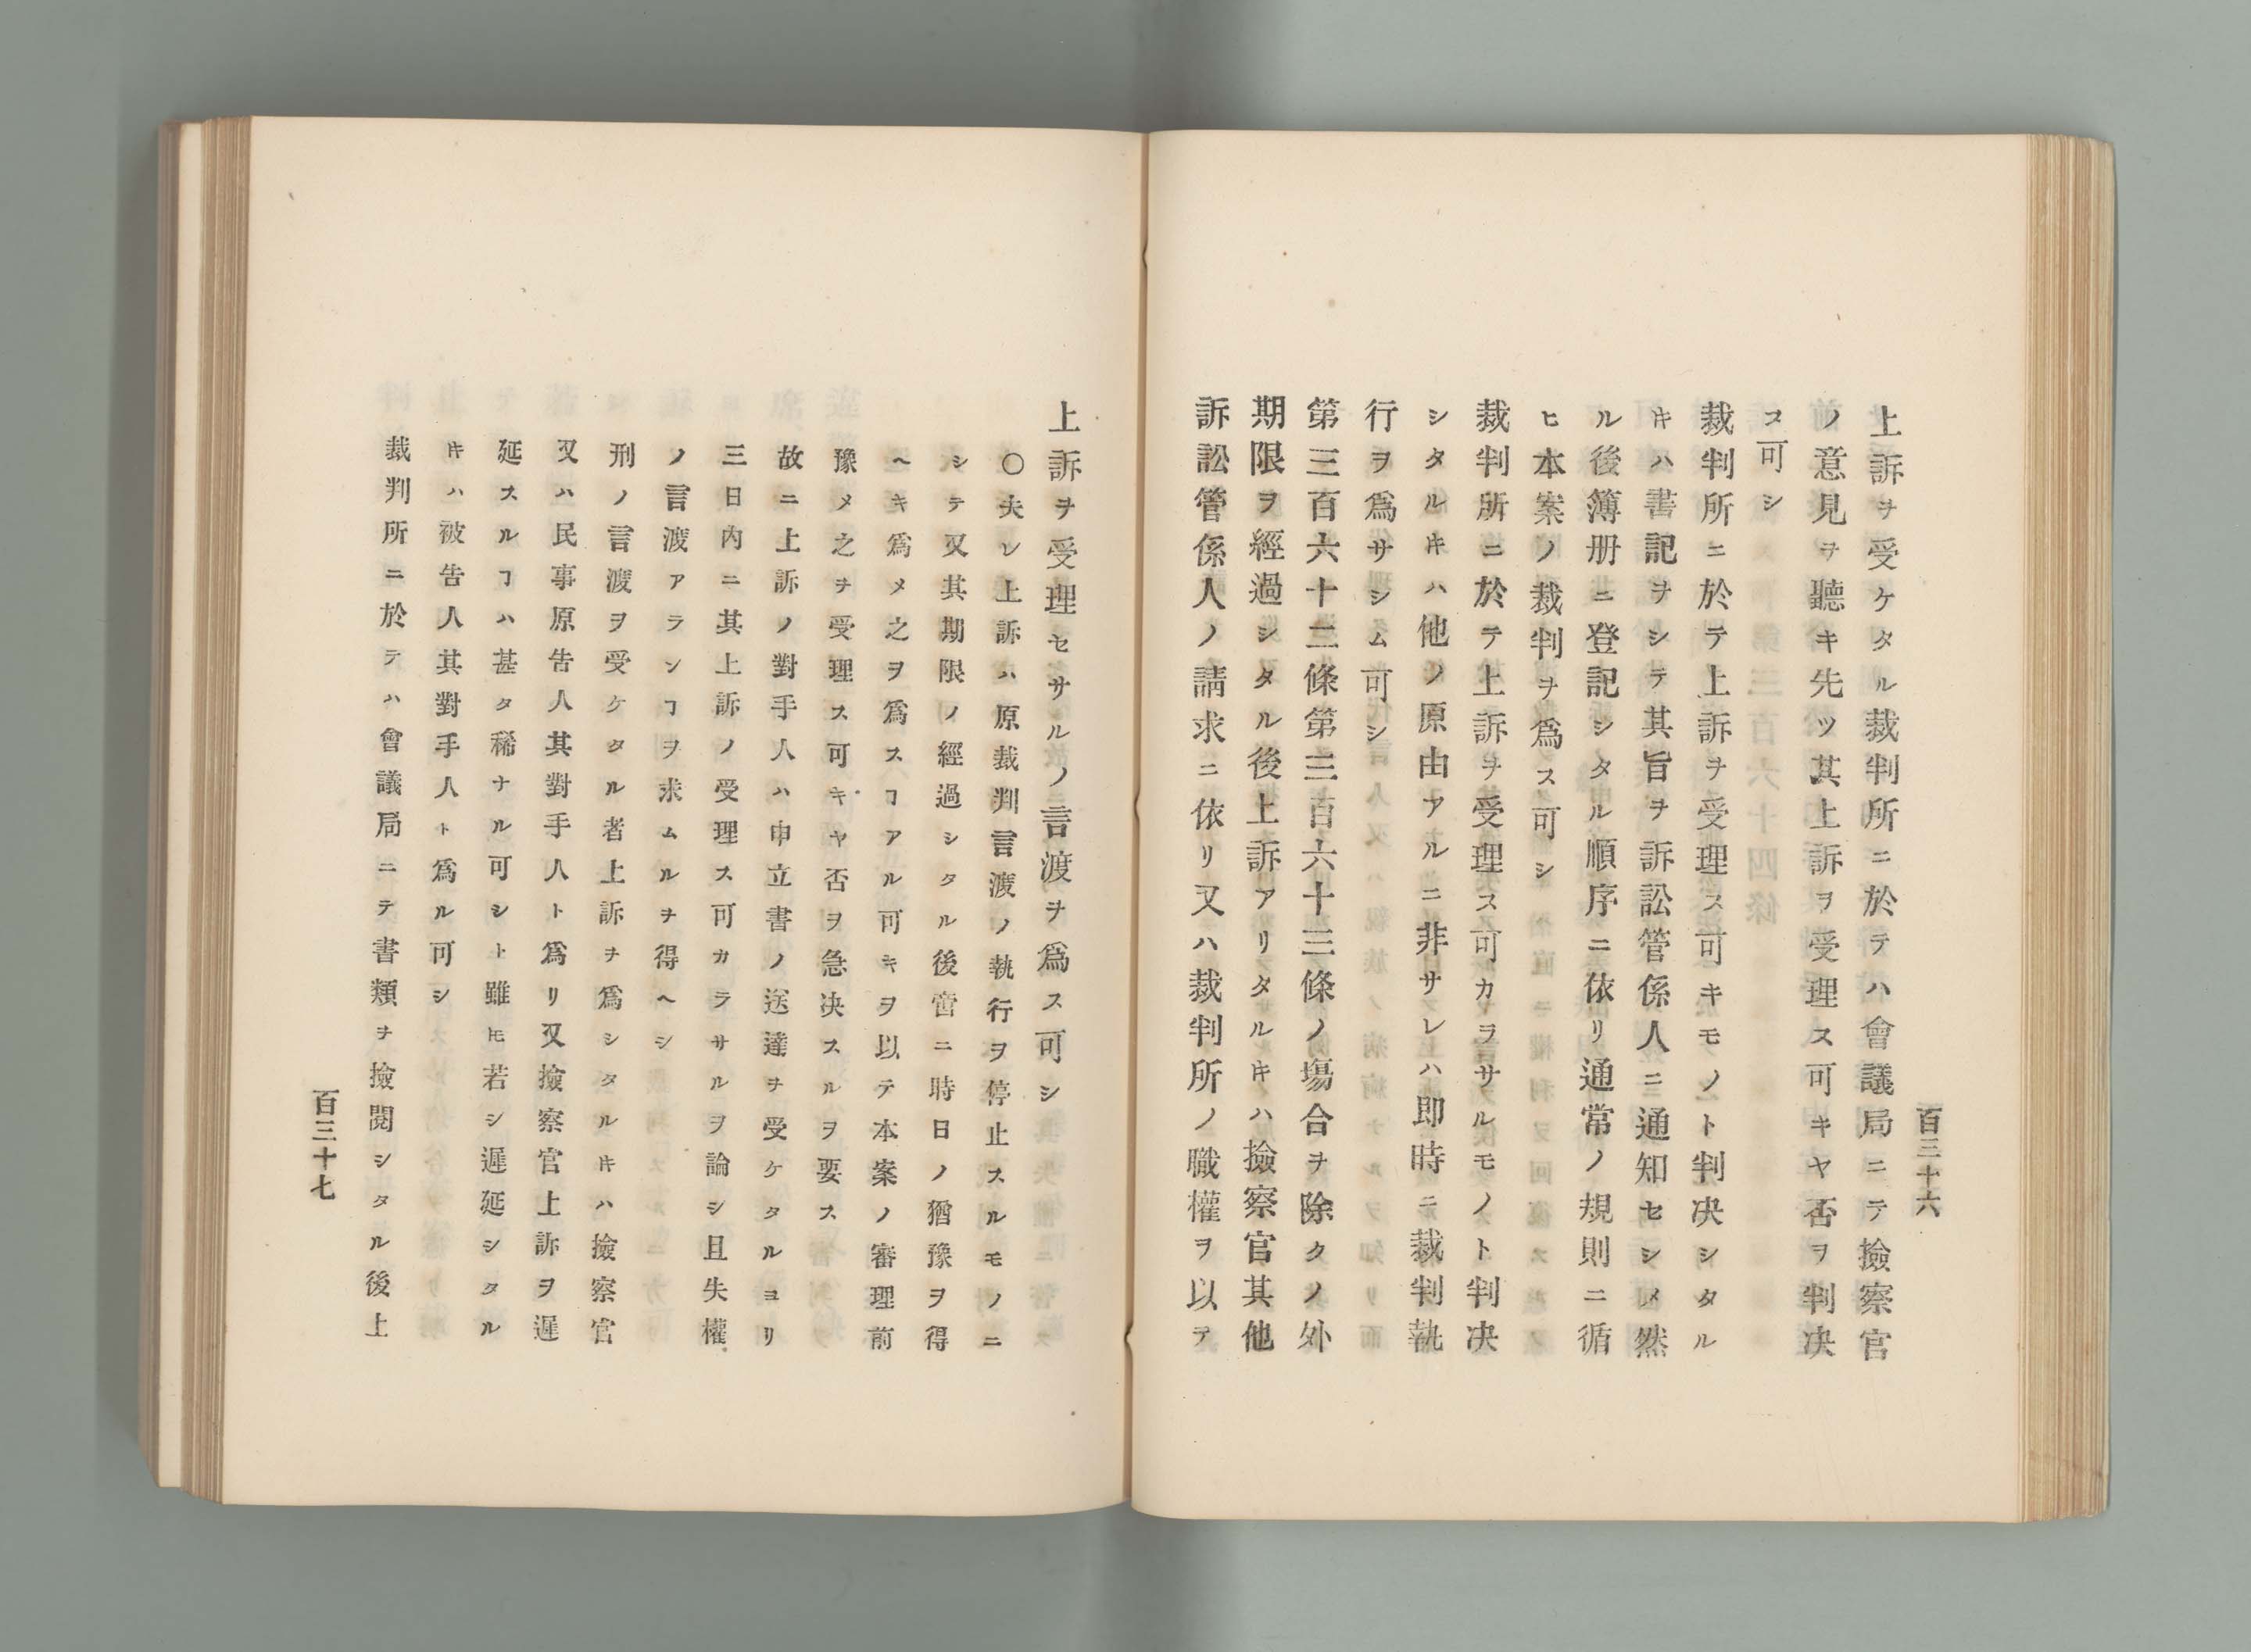 百三十六
上訴ヲ受ケタル裁判所ニ於テハ會議局ニテ撿察官
ノ意見ヲ聽キ先ツ其上訴ヲ受理ス可キヤ否ヲ判决
ス可シ
裁判所ニ於テ上訴ヲ受理ス可キモノト判决シタル
キハ書記ヲシテ其旨ヲ訴訟管係人ニ通知セシメ然
ル後簿册ニ登記シタル順序ニ依リ通常ノ規則ニ循
ヒ本案ノ裁判ヲ爲ス可シ
裁判所ニ於テ上訴ヲ受理ス可カラサルモノト判决
シタルキハ他ノ原由アルニ非サレハ即時ニ裁判執
行ヲ爲サシム可シ
第三百六十二條第三百六十三條ノ塲合ヲ除クノ外
期限ヲ經過シタル後上訴アリタルキハ撿察官其他
訴訟管係人ノ請求ニ依リ又ハ裁判所ノ職權ヲ以テ
上訴ヲ受理セサルノ言渡ヲ爲ス可シ
〇夫レ上訴ハ原裁判言渡ノ執行ヲ停止スルモノニ
シテ又其期限ノ經過シタル後啻ニ時日ノ猶豫ヲ得
ヘキ爲メ之ヲ爲スヿアル可キヲ以テ本案ノ審理前
豫メ之ヲ受理ス可キヤ否ヲ急决スルヲ要ス
故ニ上訴ノ對手人ハ申立書ノ送達ヲ受ケタルヨリ
三日内ニ其上訴ノ受理ス可カラサルヲ論シ且失權
ノ言渡アランヿヲ求ムルヲ得ヘシ
刑ノ言渡ヲ受ケタル者上訴ヲ爲シタルキハ撿察官
又ハ民事原告人其對手人ト爲リ又撿察官上訴ヲ遲
延スルヿハ甚タ稀ナル可シト雖ㇳモ若シ遲延シタル
キハ被告人其對手人ト爲ル可シ
裁判所ニ於テハ會議局ニテ書類ヲ撿閲シタル後上
百三十七